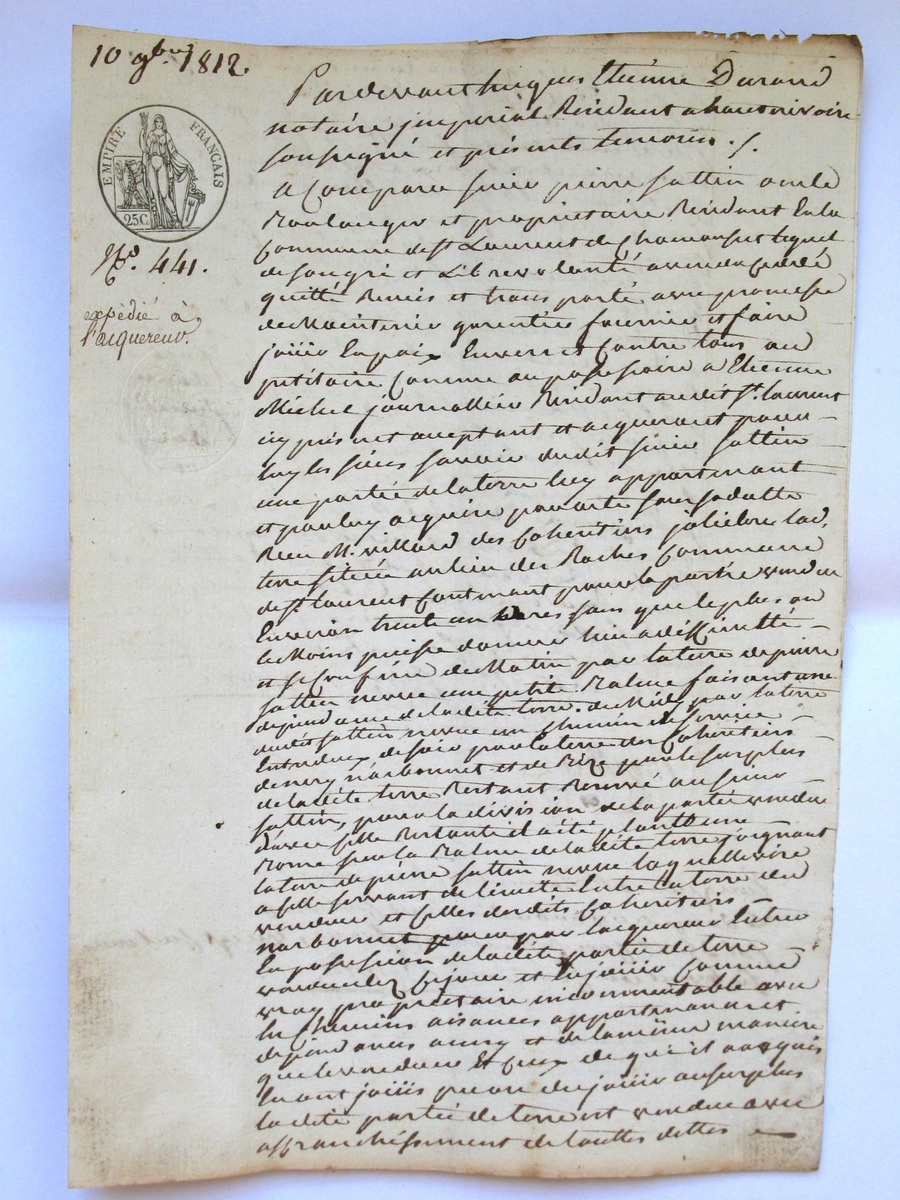 10 9bre 1812.
EMPIRE FRANÇAIS
25C
No. 441.
expédié à
l'acquereur.
Pardevant hugues Etienne Durand
notaire jmperial Residant a hauterivoire
soussigné et présents temoins ./.
a Comparu sieur pierre sattin
Boulanger et proprietaire Residant En la
Commune de st Laurent de Chamousset lequel
de son gré et Libre volonté a vendu Cedé
quitté Remis et transporté avec promesse
de Maintenir garentir fournir et faire
jouir En paix Envers et Contre tous au
petitoire Comme au possessoire a Etienne
Michel journallier Residant audit St. laurent
icy présent acceptant et acquerant pour
luy les siens savoir dudit sieur sattin
une partie de la terre luy appartenant
et par luy acquise par acte sous sa datte
Reçu M. villard des Coheritiers
terre située au lieu des Roches Commune
de st Laurent Contenant pour la partie vendue
Environ trente ares sans que le plus ou
le Moins puisse donner lieu a
et se Confine de Matin par la terre de pierre
sattin neveu une petite Balme faisant une
dependance de ladite terre. de Midy par la terre
dudit sattin neveu un Chemin de service
Entredeux de soir par la terre des Coheritiers
de narbonnet et de Bize par le surplus
de ladite terre Restant Reservé au sieur
sattin, pour la division de la partie vendue
d'avec celle Restante il a été planté une
Borne sur la Balme de ladite terre joignant
la terre de pierre sattin neveu laquelle
a celle servant de limite Entre la terre du
vendeur et celles desdits Coheritiers
narbonnet pour par lacquereur Entrer
En possession de ladite partie de terre
vendue dez Cejour et En jouir Comme
vray proprietaire incommutable avec
les Chemins aisances appartenances et
dependances ainsy et de la même maniere
que le vendeur Et Ceux de qui il a acquis
En ont jouis pu ou du jouir au surplus
ladite partie de terre est vendue avec
affranchissement de touttes dettes